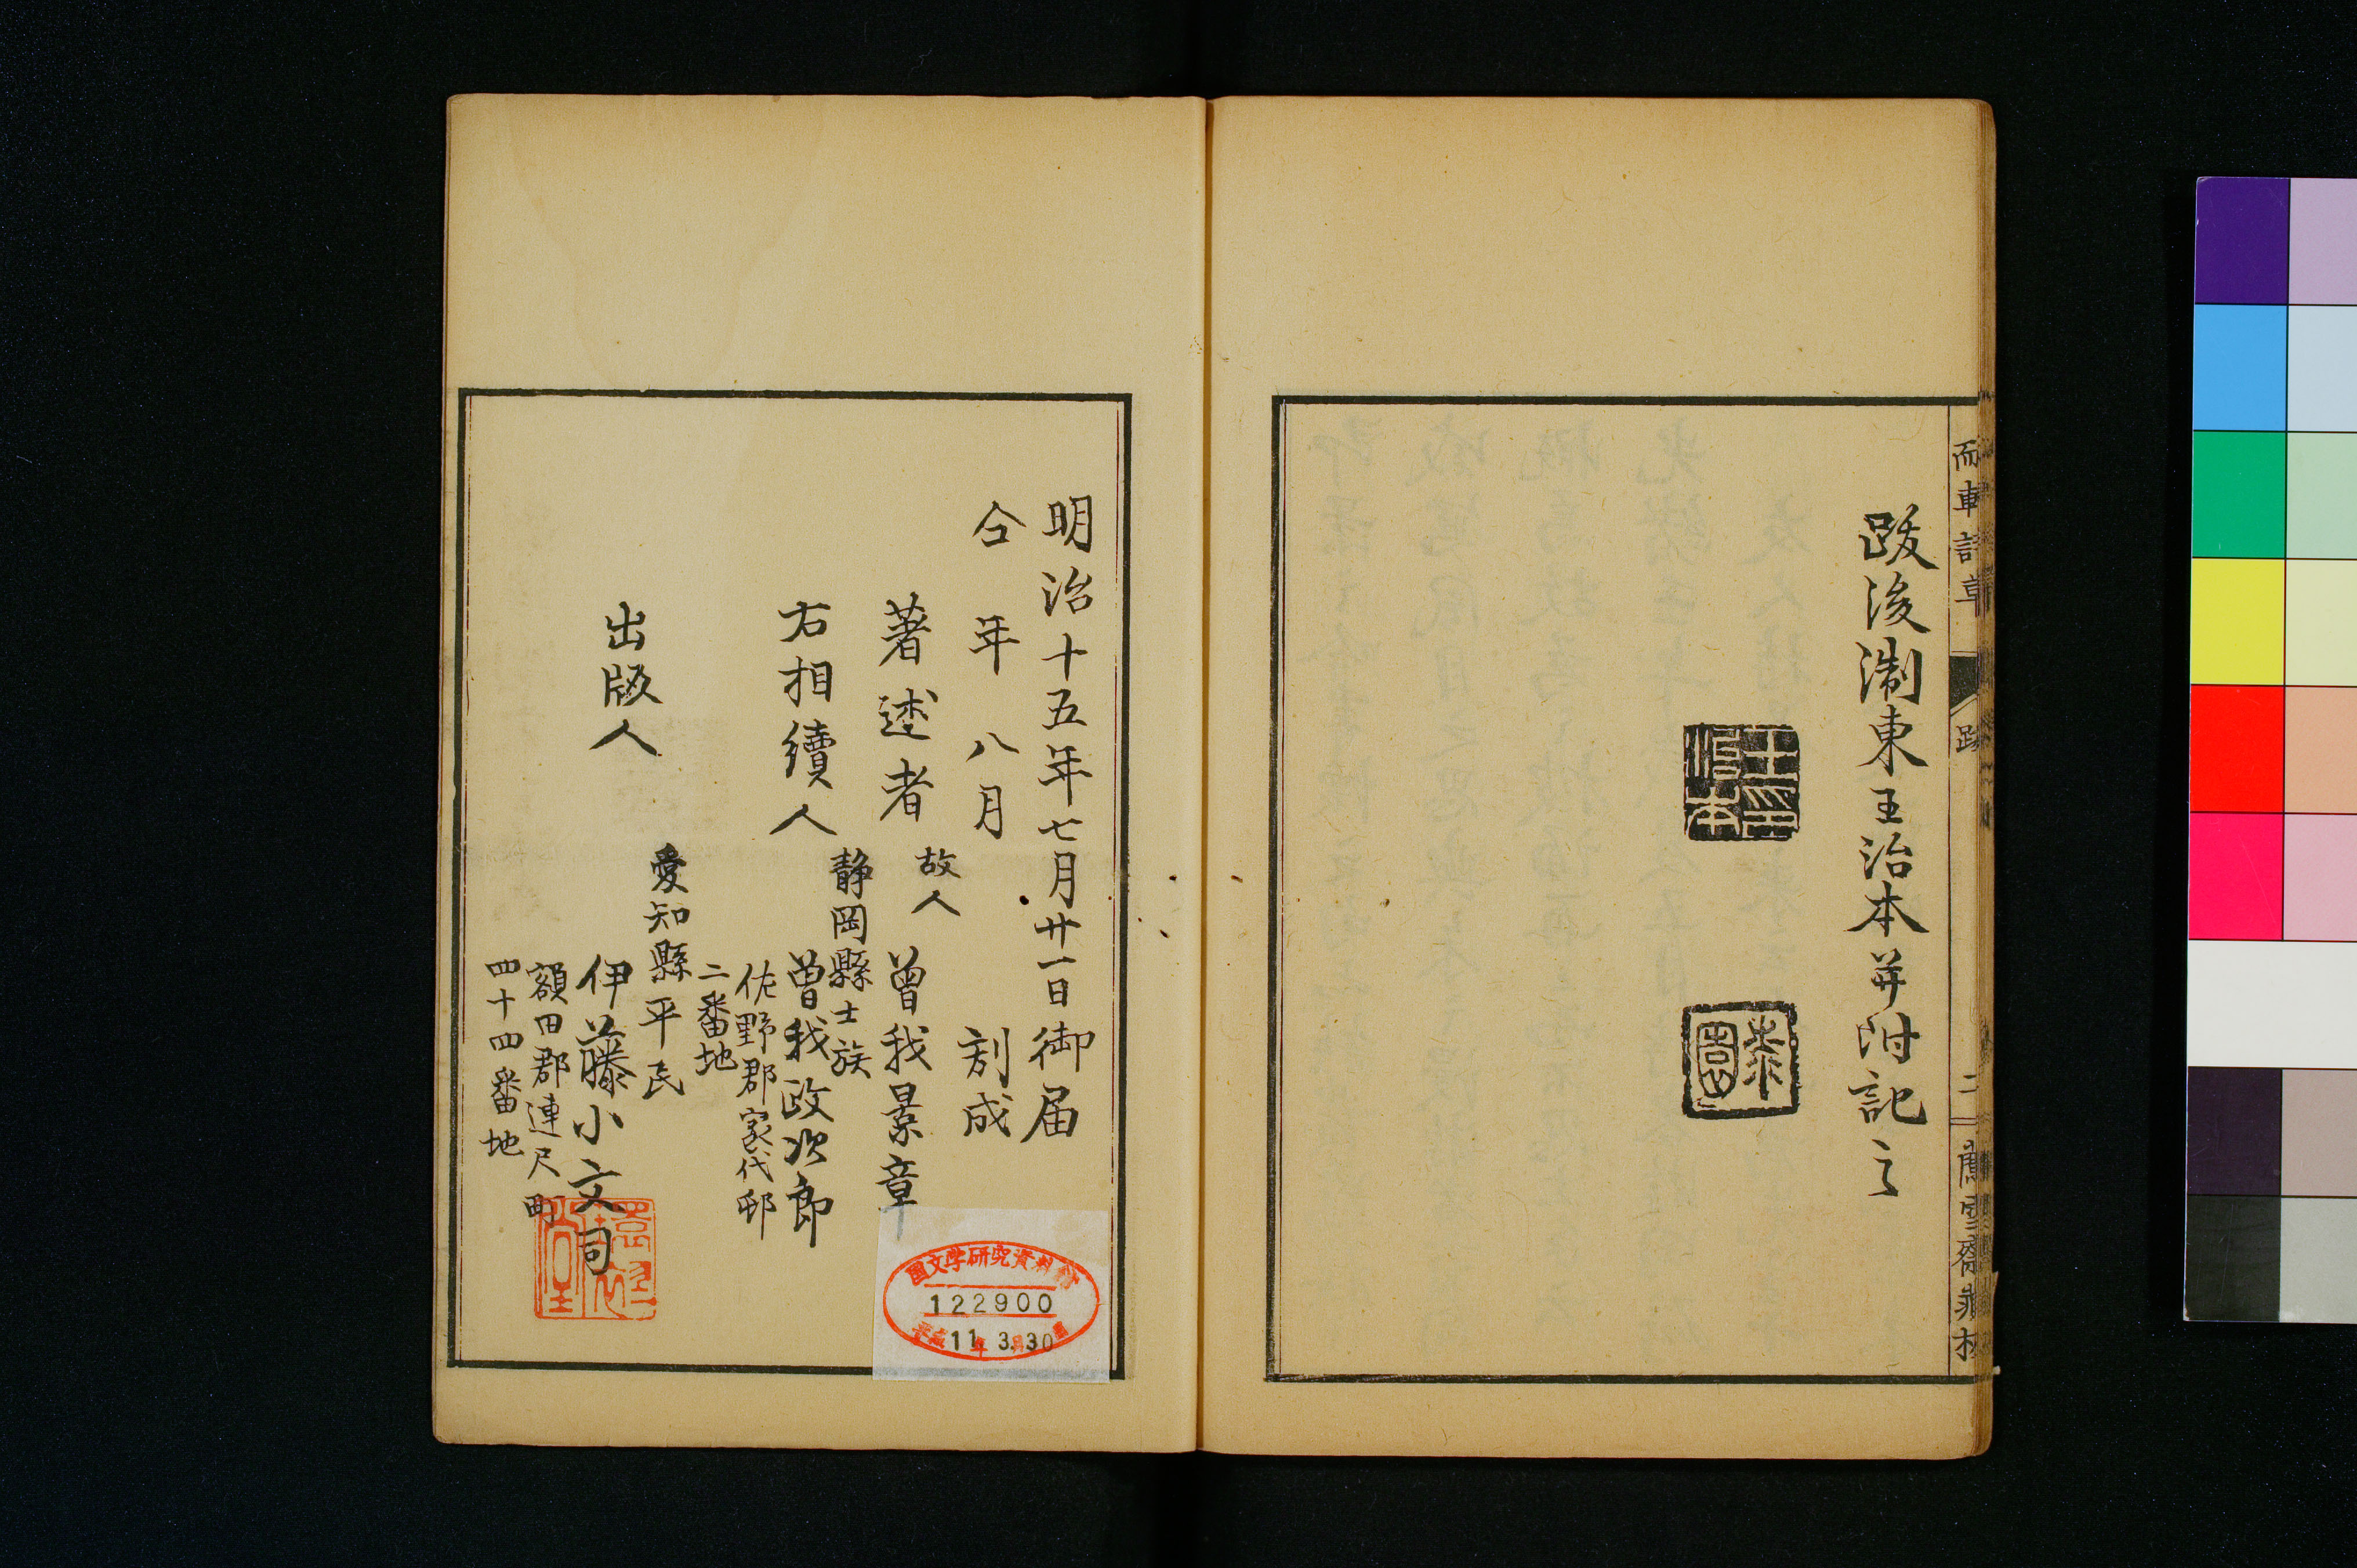 跋後淛東王治本并附記之
王印
治本
桼園
跋
二
明治十五年七月廿一日御届
仝年八月刻成
著述者
故人
曾我景章
右相續人
静岡縣士族
曽我政次郎
佐野郡家代邨
二番地
出版人
愛知縣平民
伊藤小文司
額田郡連尺町
四十四番地
国文学研究資料館
122900
平成11年3月30日